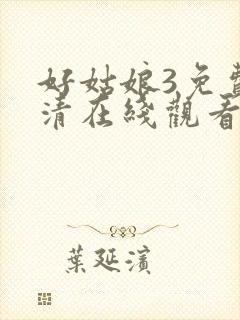 好姑娘3免費
清在綫觀看
葉延濱